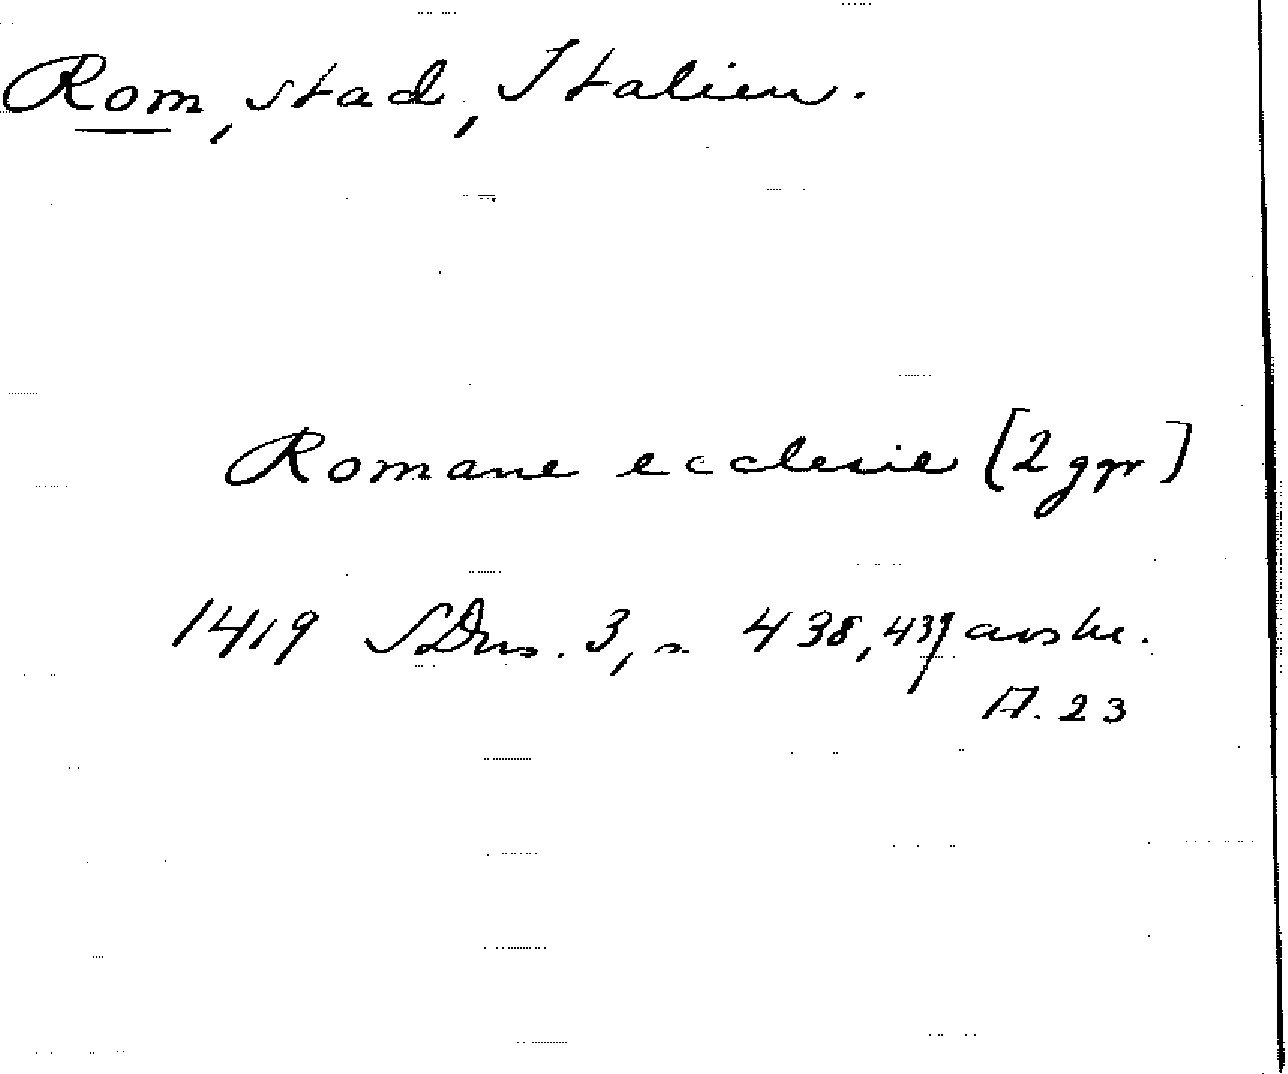 Rom, stad, Italien.
Romane ecclesie [2 ggr]
1419 SDns. 3, s 438, 439 avskr.
A. 23